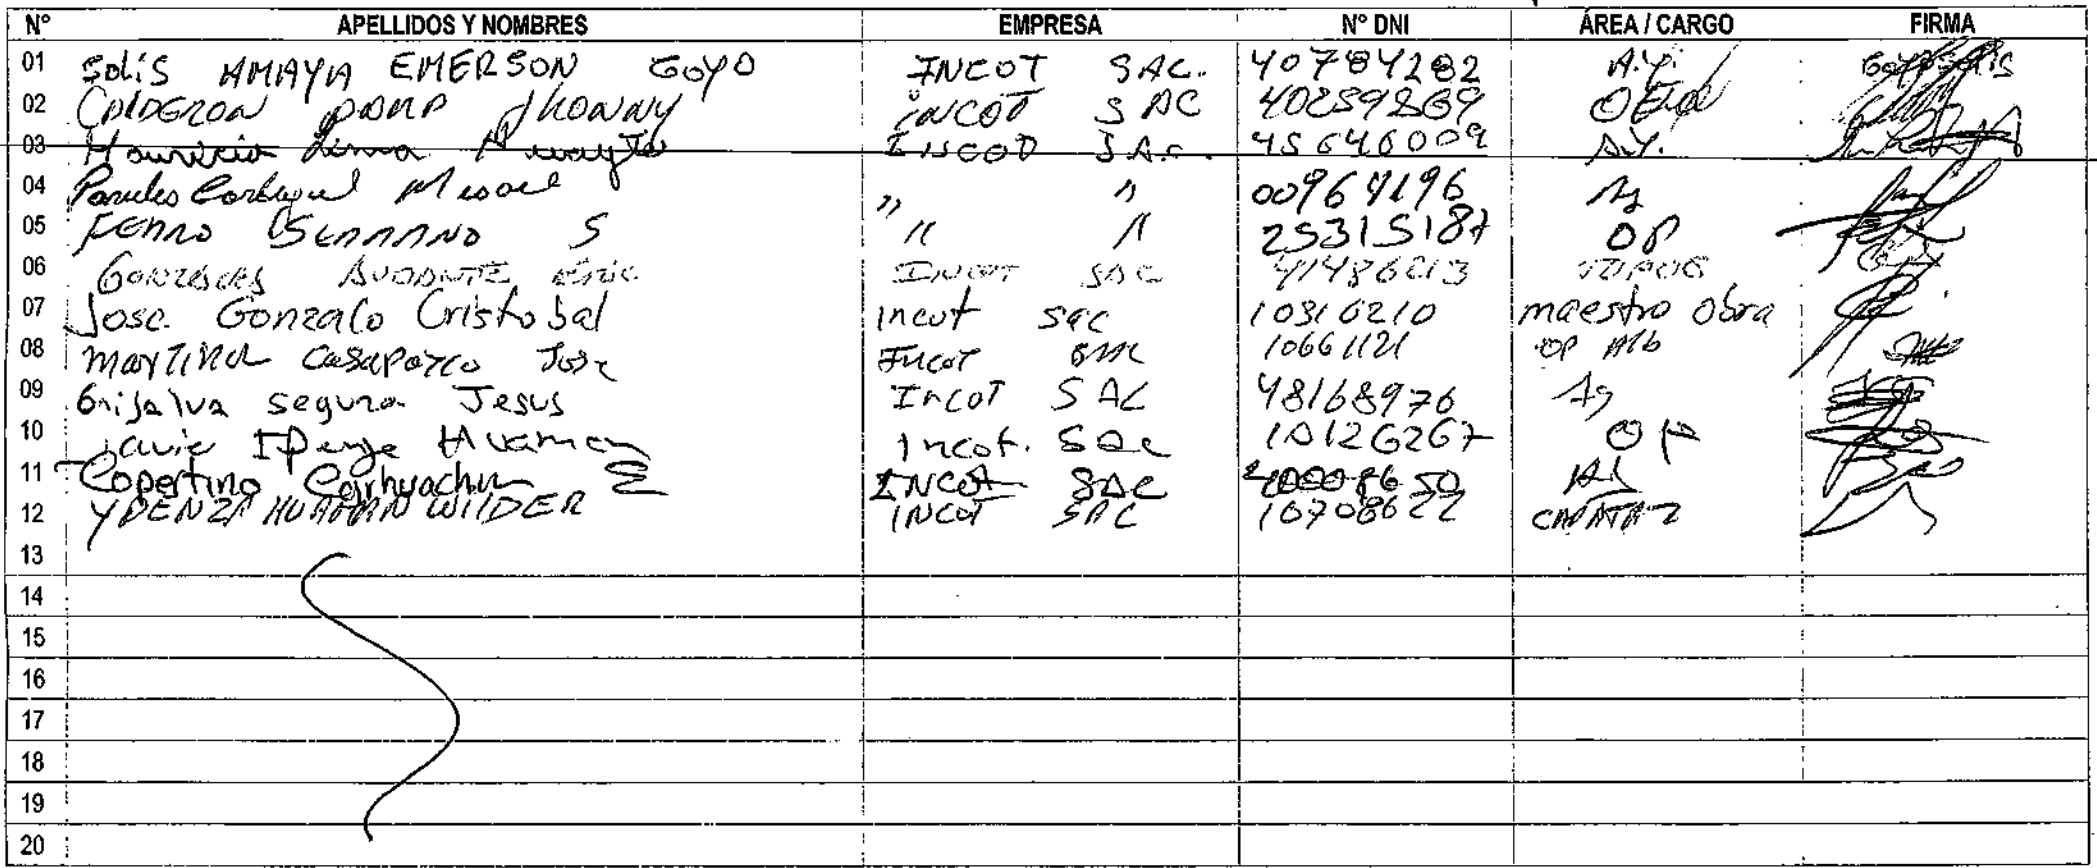 N° APELLIDOS Y NOMBRES EMPRESA N° DNI ÁREA / CARGO FIRMA
01 Solis AMAYA EMERSON GOYO INCOT SAC. 40784282 A.Y.
02 CALDERON POMA JHONNY INCOT SAC 40259869
03 Mauricio Lima INCOT SAC. 45646009 A.Y.
04 Misael " " 00964196 Ay
05 FERRO SERRANO S " " 25315187 OP
06 GONZALES INCOT SAC
07 Jose Gonzalo Cristobal incot sac 10316210 maestro obra
08 Jose Incot SAC 10661121 OP Alb
09 Grijalva segura Jesus Incot SAC 48168976 Ay
10 Huaman Incot. SAC 10126267 OP
11 Copertino Carhuachin INCOT SAC
12 YPENZA HUAMAN WILDER INCOT SAC 10708622 CAPATAZ
13
14
15
16
17
18
19
20